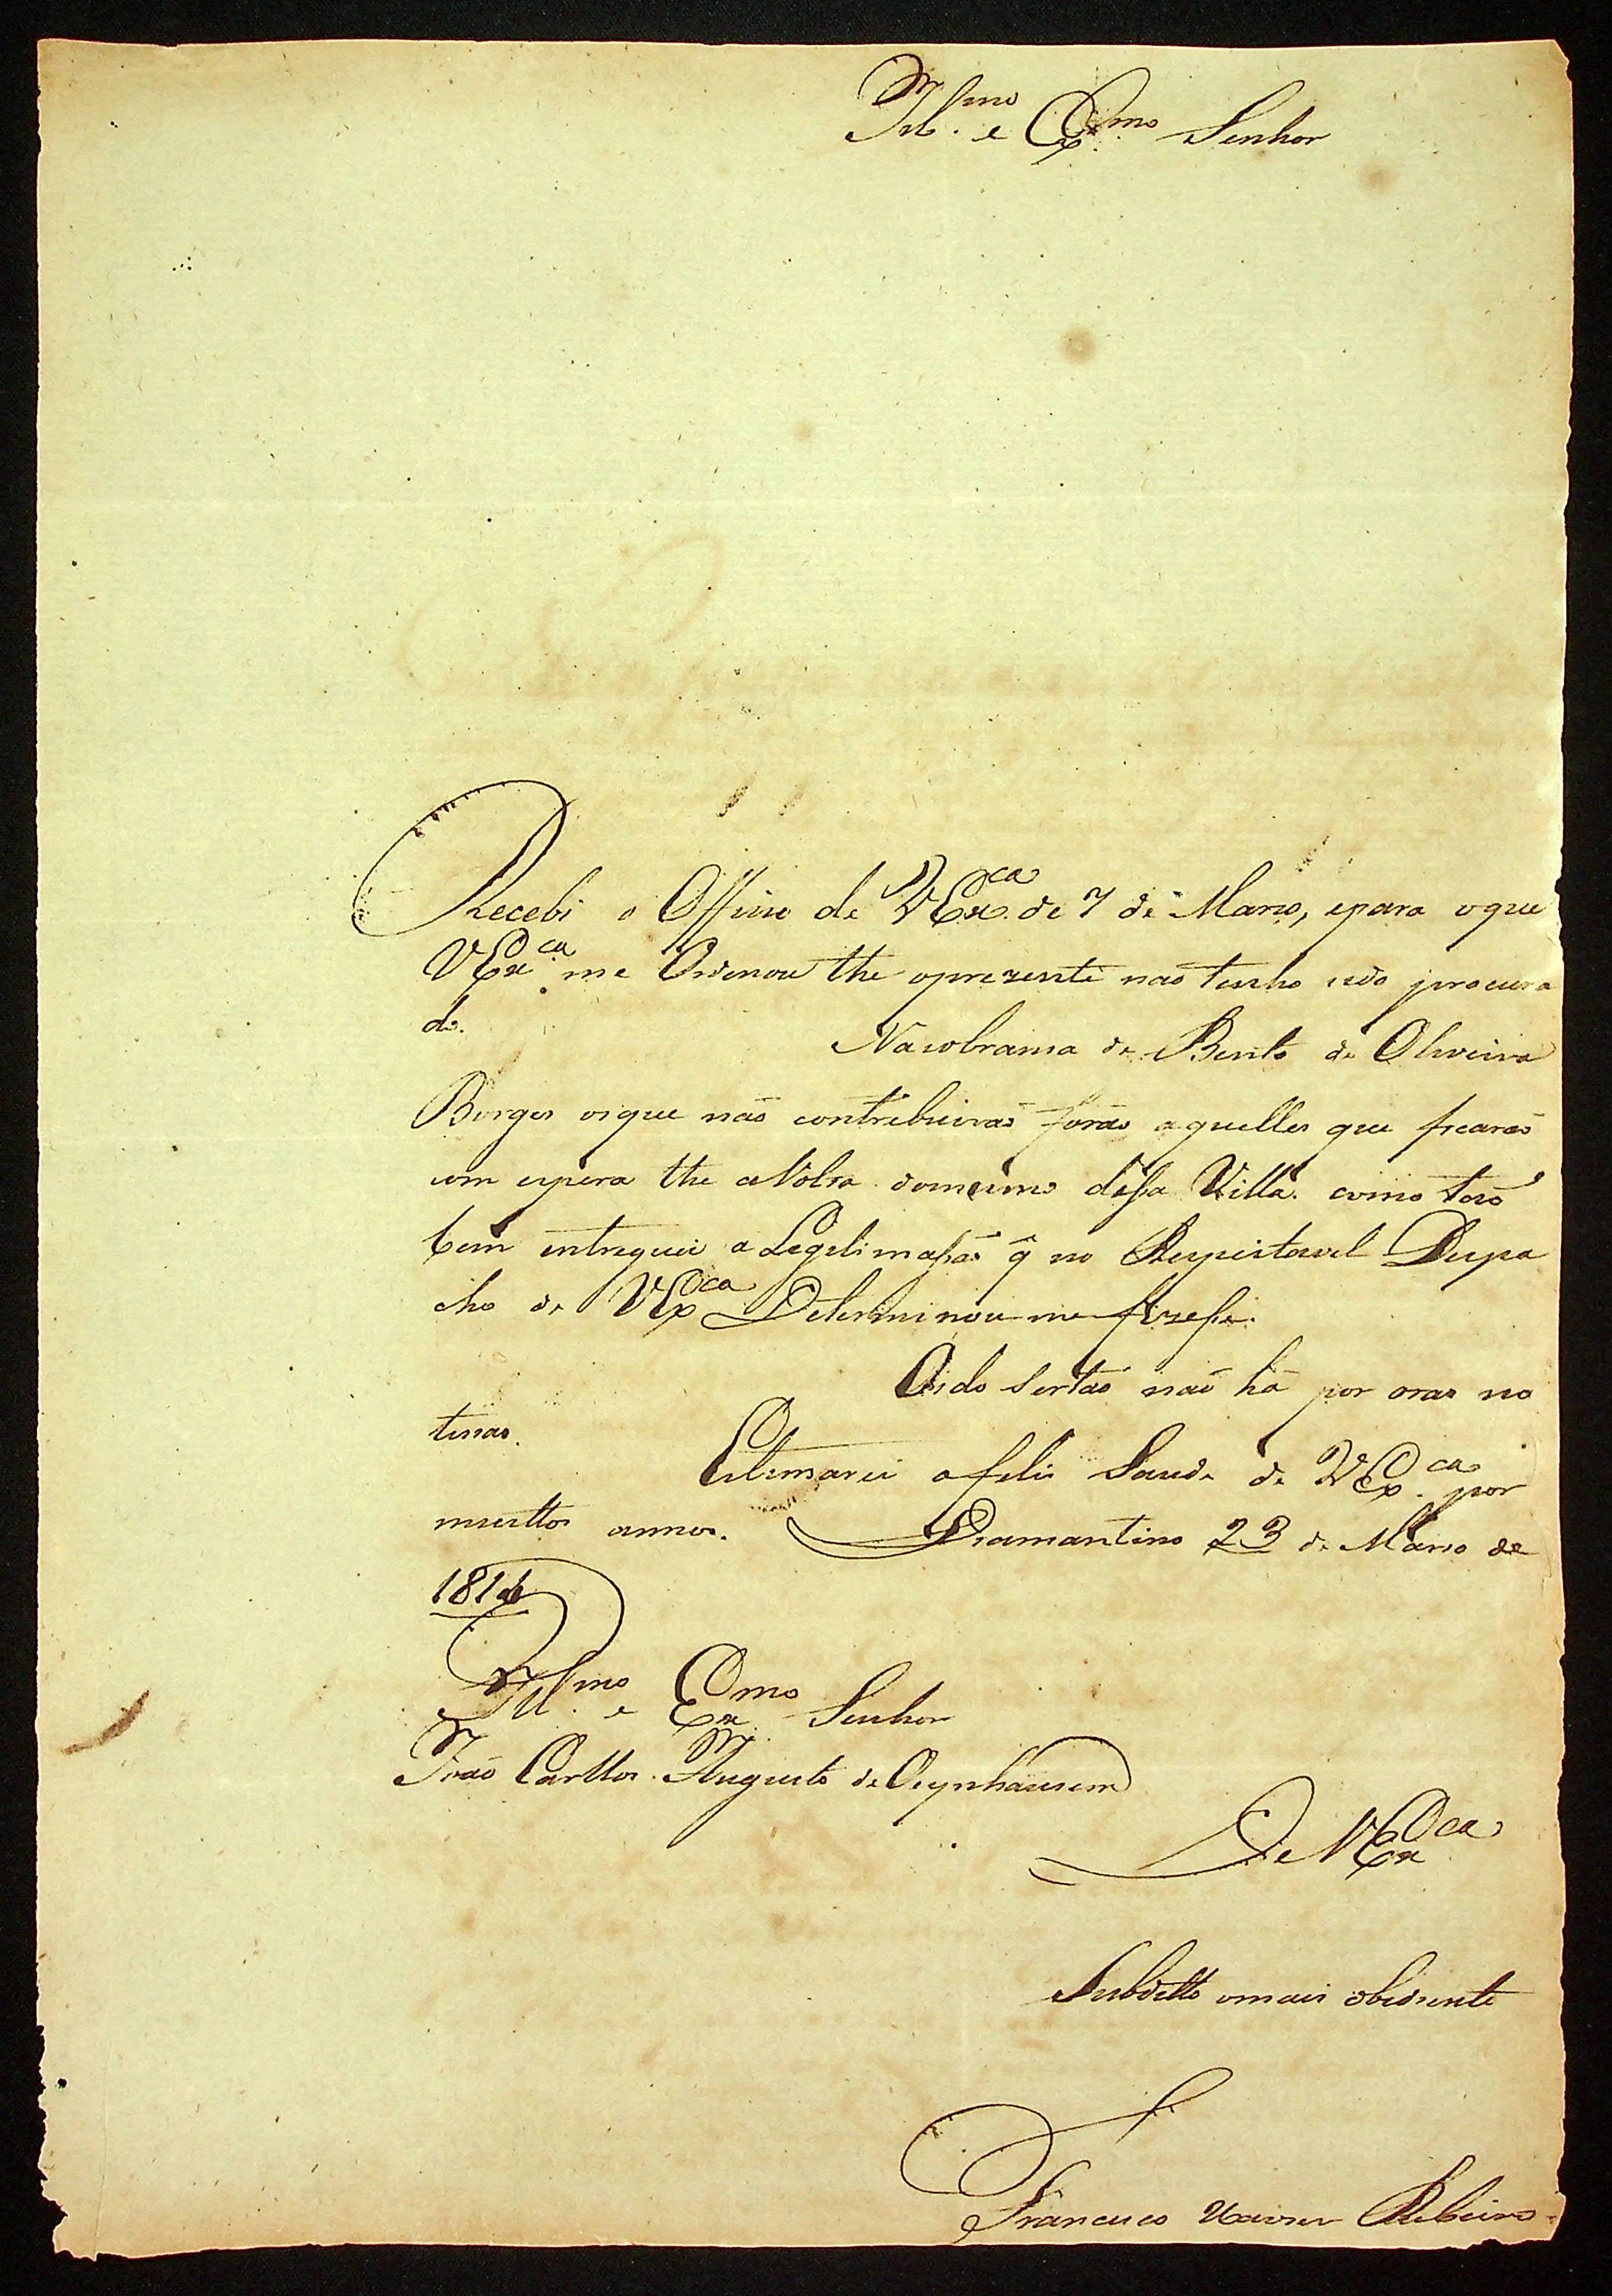 Ill.mo e Ex.mo Senhor
Recebi o Officio de VEx.ca de 7 de Marso, epara oque
VEx.ca me Ordenou the oprezente naõ tenho sido procura
do.
Nacobransa de Bento de Oliveira
Borges osque naõ contrebuiraõ foraõ aquelles que ficaraõ
com espera the aVolta domesmo dessa Villa. como taõ
bem entreguei a Legetimasaõ q̃ no Respeitavel Despa
cho de VEx.ca Determinou-me fizesse.
Cá do Sertaõ naõ há por oras no
tisias.
Estimarei afelis Saude de VEx.ca por
muittos annos. Diamantino 23 de Marso de
181
Ill.mo e Ex.mo Senhor
Joaõ Carllos Augusto de Oeynhausem
De VEx.ca
Subditto omais obediente
Francisco Xavier Ribeiro